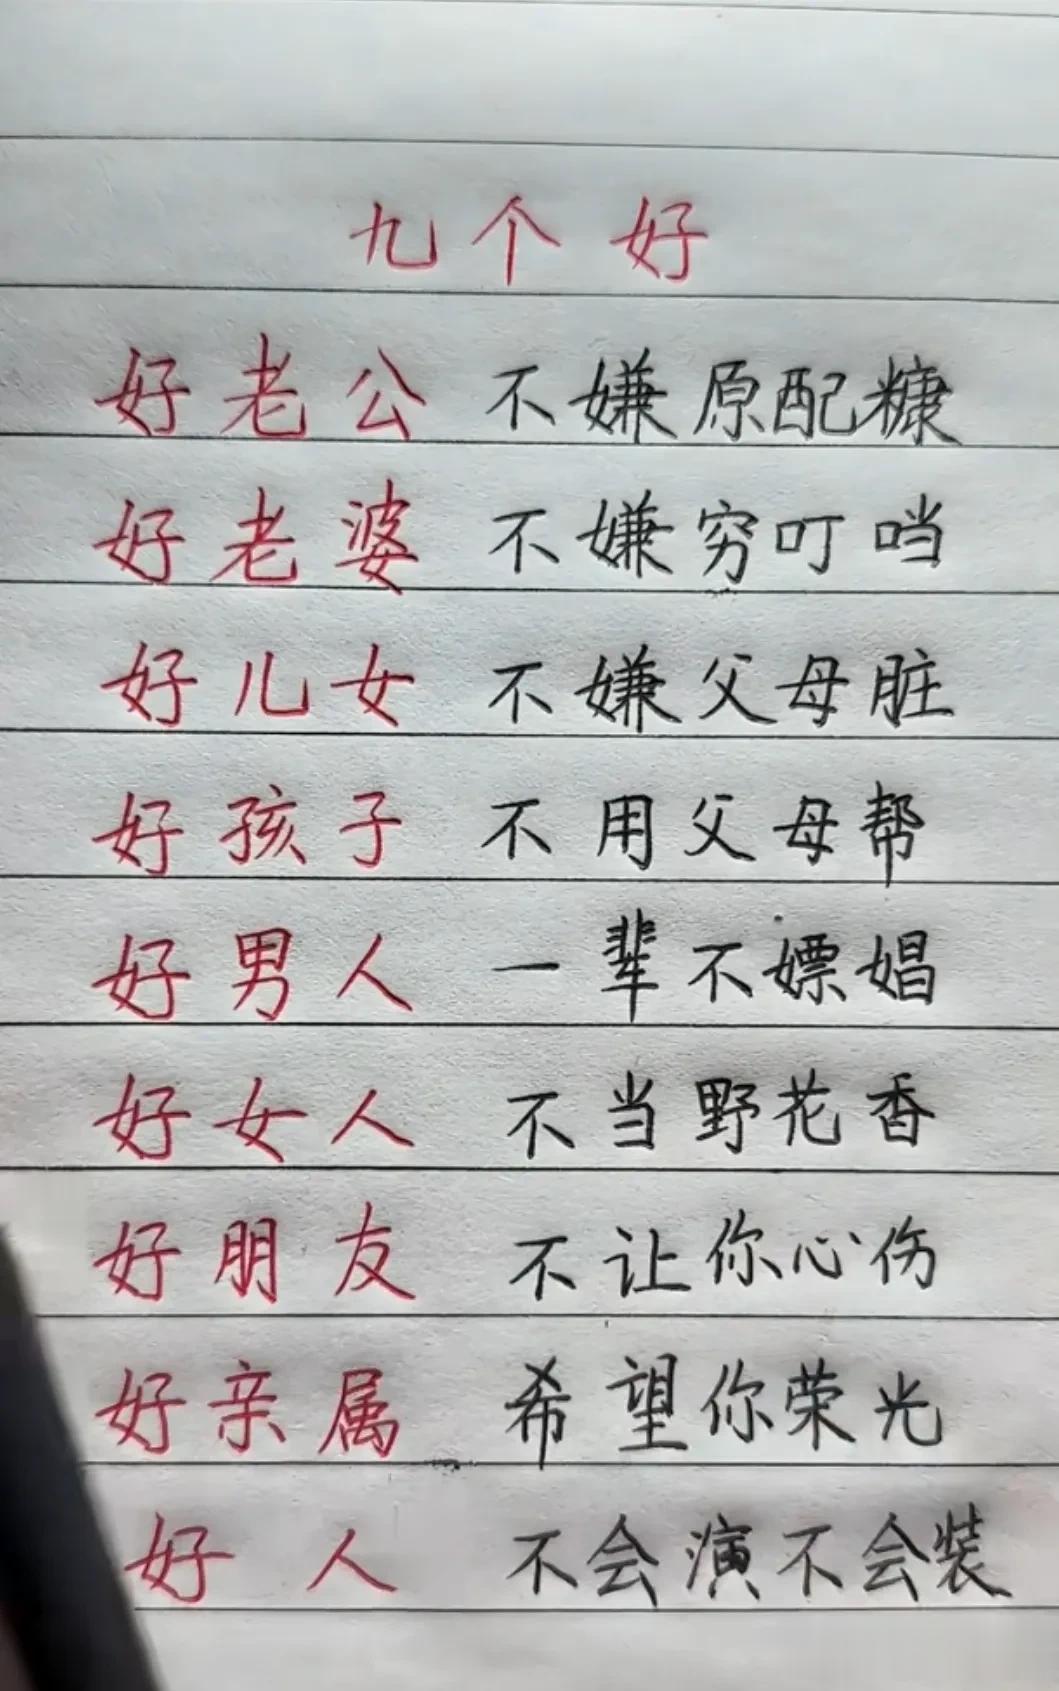 九个好
好老公 不嫌原配糠
好老婆 不嫌穷叮当
好儿女 不嫌父母脏
好孩子 不用父母帮
好男人 一辈不嫖娼
好女人 不当野花香
好朋友 不让你心伤
好亲属 希望你荣光
好人 不会演不会装